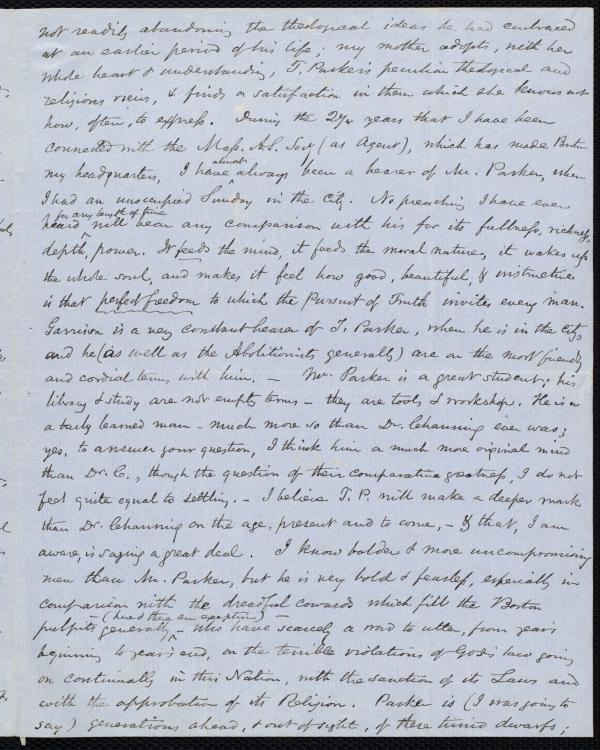 not readily abandoning the theological ideas he had embraced
at an earlier period of his life; my mother adopts, with her
whole heart & understanding, T. Parker's peculiar theological and
religious views, & finds a satisfaction in them which she knows not
how, often, to express. During the 2½ years that I have been
connected with the Mass. A.S. Socy (as Agent), which has made Boston
my headquarters, I have almost always been a hearer of Mr. Parker, when
I had an unoccupied Sunday in the City. No preaching I have ever
heard for any length of time will bear any comparison with his for its fullness, richness,
depth, power. It feeds the mind, it feeds the moral nature, it wakes up
the whole soul, and makes it feel how good, beautiful, & instructive
is that perfect freedom to which the Pursuit of Truth invites every man.
Garrison is a very constant hearer of T. Parker, when he is in the City,
and he (as well as the Abolitionists generally) are on the most friendly
and cordial terms with him. — Mr. Parker is a great student; his
library & study are not empty terms — they are tools & workshop. He is a
a truly learned man — much more so than Dr. Channing ever was;
yes, to answer your question, I think him a much more original mind
than Dr. C., though the question of their comparative greatness, I do not
feel quite equal to settling. — I believe T. P. will make a deeper mark
than Dr. Channing on the age, present and to come, — & that, I am
aware, is saying a great deal. I know bolder & more uncompromising
men than Mr. Parker, but he is very bold & fearless, especially in
comparison with the dreadful cowards which fill the Boston
pulpits generally (here & there an exception) — who have scarcely a word to utter, from year's
beginning to year's end, on the terrible violations of God's law going
on continually in this Nation, with the sanction of its Laws and
with the approbation of its Religion. Parker is (I was going to
say) generations ahead, & out of sight, of these timid dwarfs;